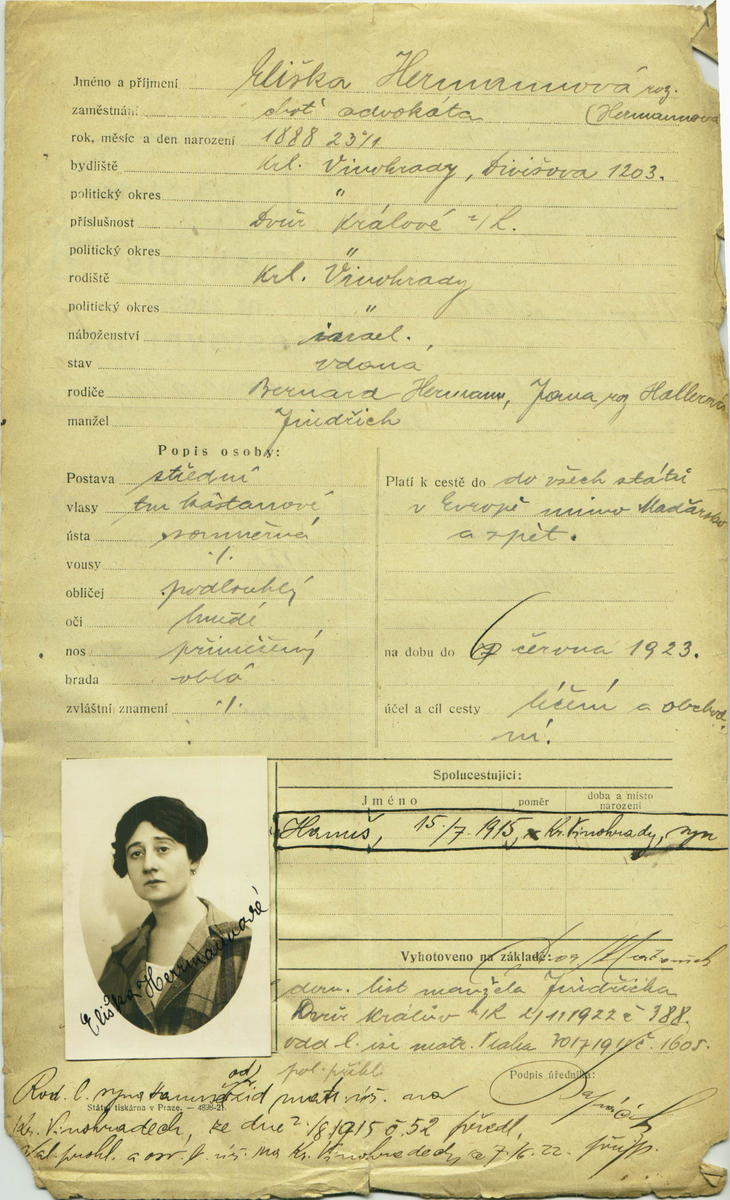 Jméno a příjmení Eliška Hermannová roz.
zaměstnání choť advokáta (Hermannová
rok, měsíc a den narození 1888 23/1
bydliště Krl. Vinohrady, Divišova 1203.
politický okres "
příslušnost Dvůr Králové n/L.
politický okres "
rodiště Krl. Vinohrady
politický okres "
náboženství israel.
stav vdaná
rodiče Bernard Hermann, Jana roz Hallerová
manžel Jindřich
Popis osoby:
Postava střední
vlasy tm kaštanové
ústa souměrná
vousy ./.
obličej podlouhlý
oči hnědé
nos přiměřený
brada oblá
zvláštní znamení ./.
Platí k cestě do do všech států
v Evropě mimo Maďarsko
a zpět.
na dobu do června 1923.
účel a cíl cesty léčení a obchod
ní.
Spolucestující:
Jméno poměr doba a místo narození
Hanuš, 15./7. 1915, Kr. Vinohrady, syn
Vyhotoveno na základě:
dom. list manžela Jindřicha
Dvůr Králův n/L 2/11 1922 č 388.
odd l. isr matr. Praha č. 1605.
Podpis úředníka:
Eliška Herrmannová
Rod. l. syna Hanuše od žid matr. úř. na
Státní tiskárna v Praze. — 4898-21.
Kr. Vinohradech, ze dne 1915 č 52 předl.
na Kr. Vinohradech 22.